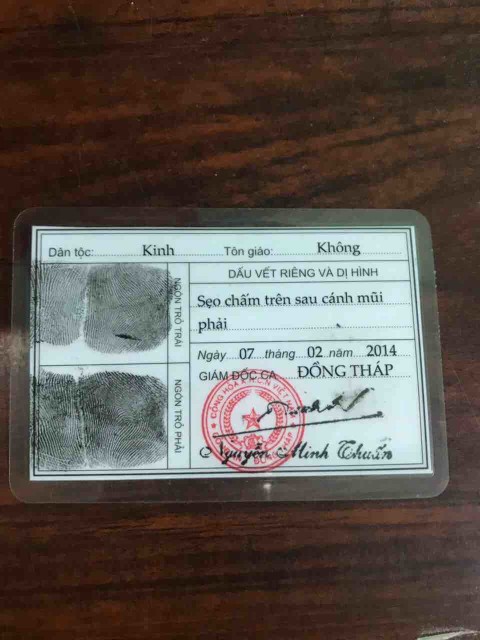 Dân tộc: Kinh Tôn giáo: Không
NGÓN TRỎ TRÁI
NGÓN TRỎ PHẢI
DẤU VẾT RIÊNG VÀ DỊ HÌNH
Sẹo chấm trên sau cánh mũi
phải
Ngày 07 tháng 02 năm 2014
GIÁM ĐỐC CA ĐỒNG THÁP
CỘNG HÒA X.H.C.N VIỆT NAM
ĐỒNG THÁP
Nguyễn Minh Thuấn